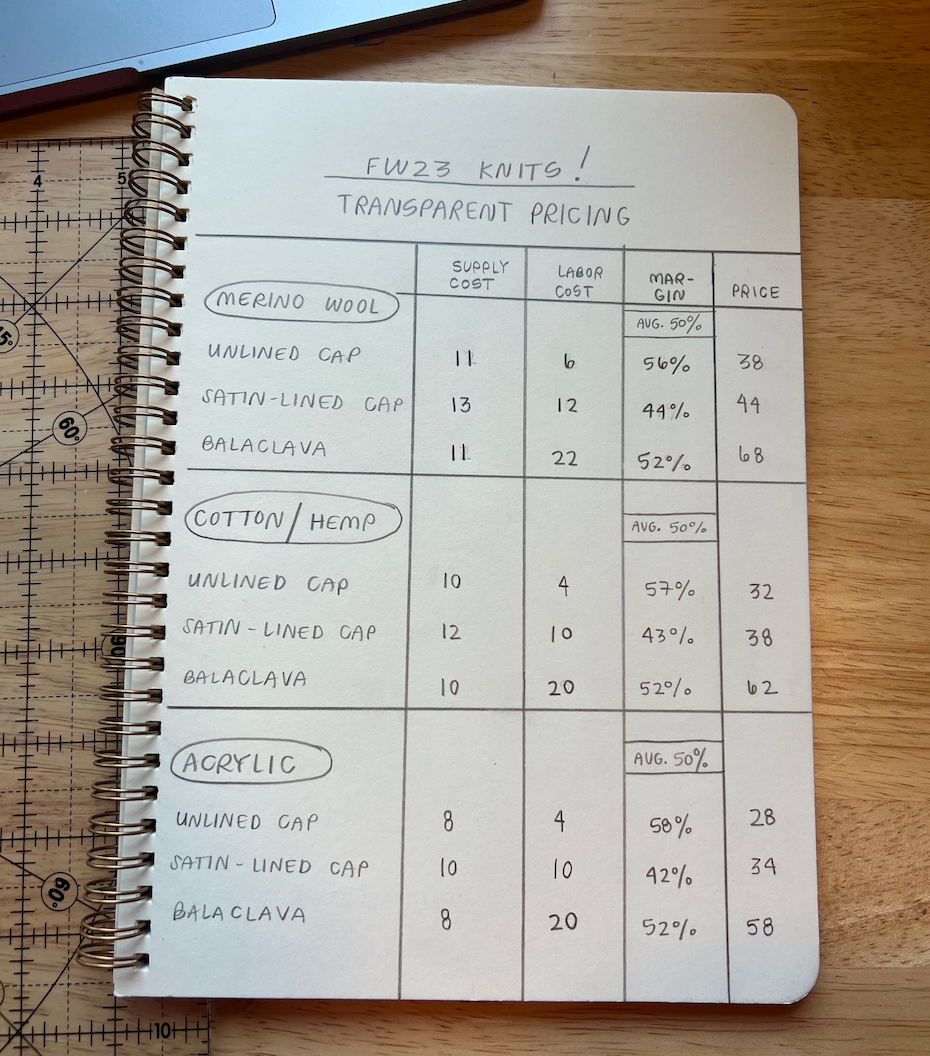 FW23 KNITS!
TRANSPARENT PRICING
SUPPLY COST LABOR COST MAR-GIN PRICE
MERINO WOOL AVG. 50%
UNLINED CAP 11 6 56% 38
SATIN-LINED CAP 13 12 44% 44
BALACLAVA 11 22 52% 68
COTTON/HEMP AVG. 50%
UNLINED CAP 10 4 57% 32
SATIN-LINED CAP 12 10 43% 38
BALACLAVA 10 20 52% 62
ACRYLIC AVG. 50%
UNLINED CAP 8 4 58% 28
SATIN-LINED CAP 10 10 42% 34
BALACLAVA 8 20 52% 58
4 5
60°
60°
10